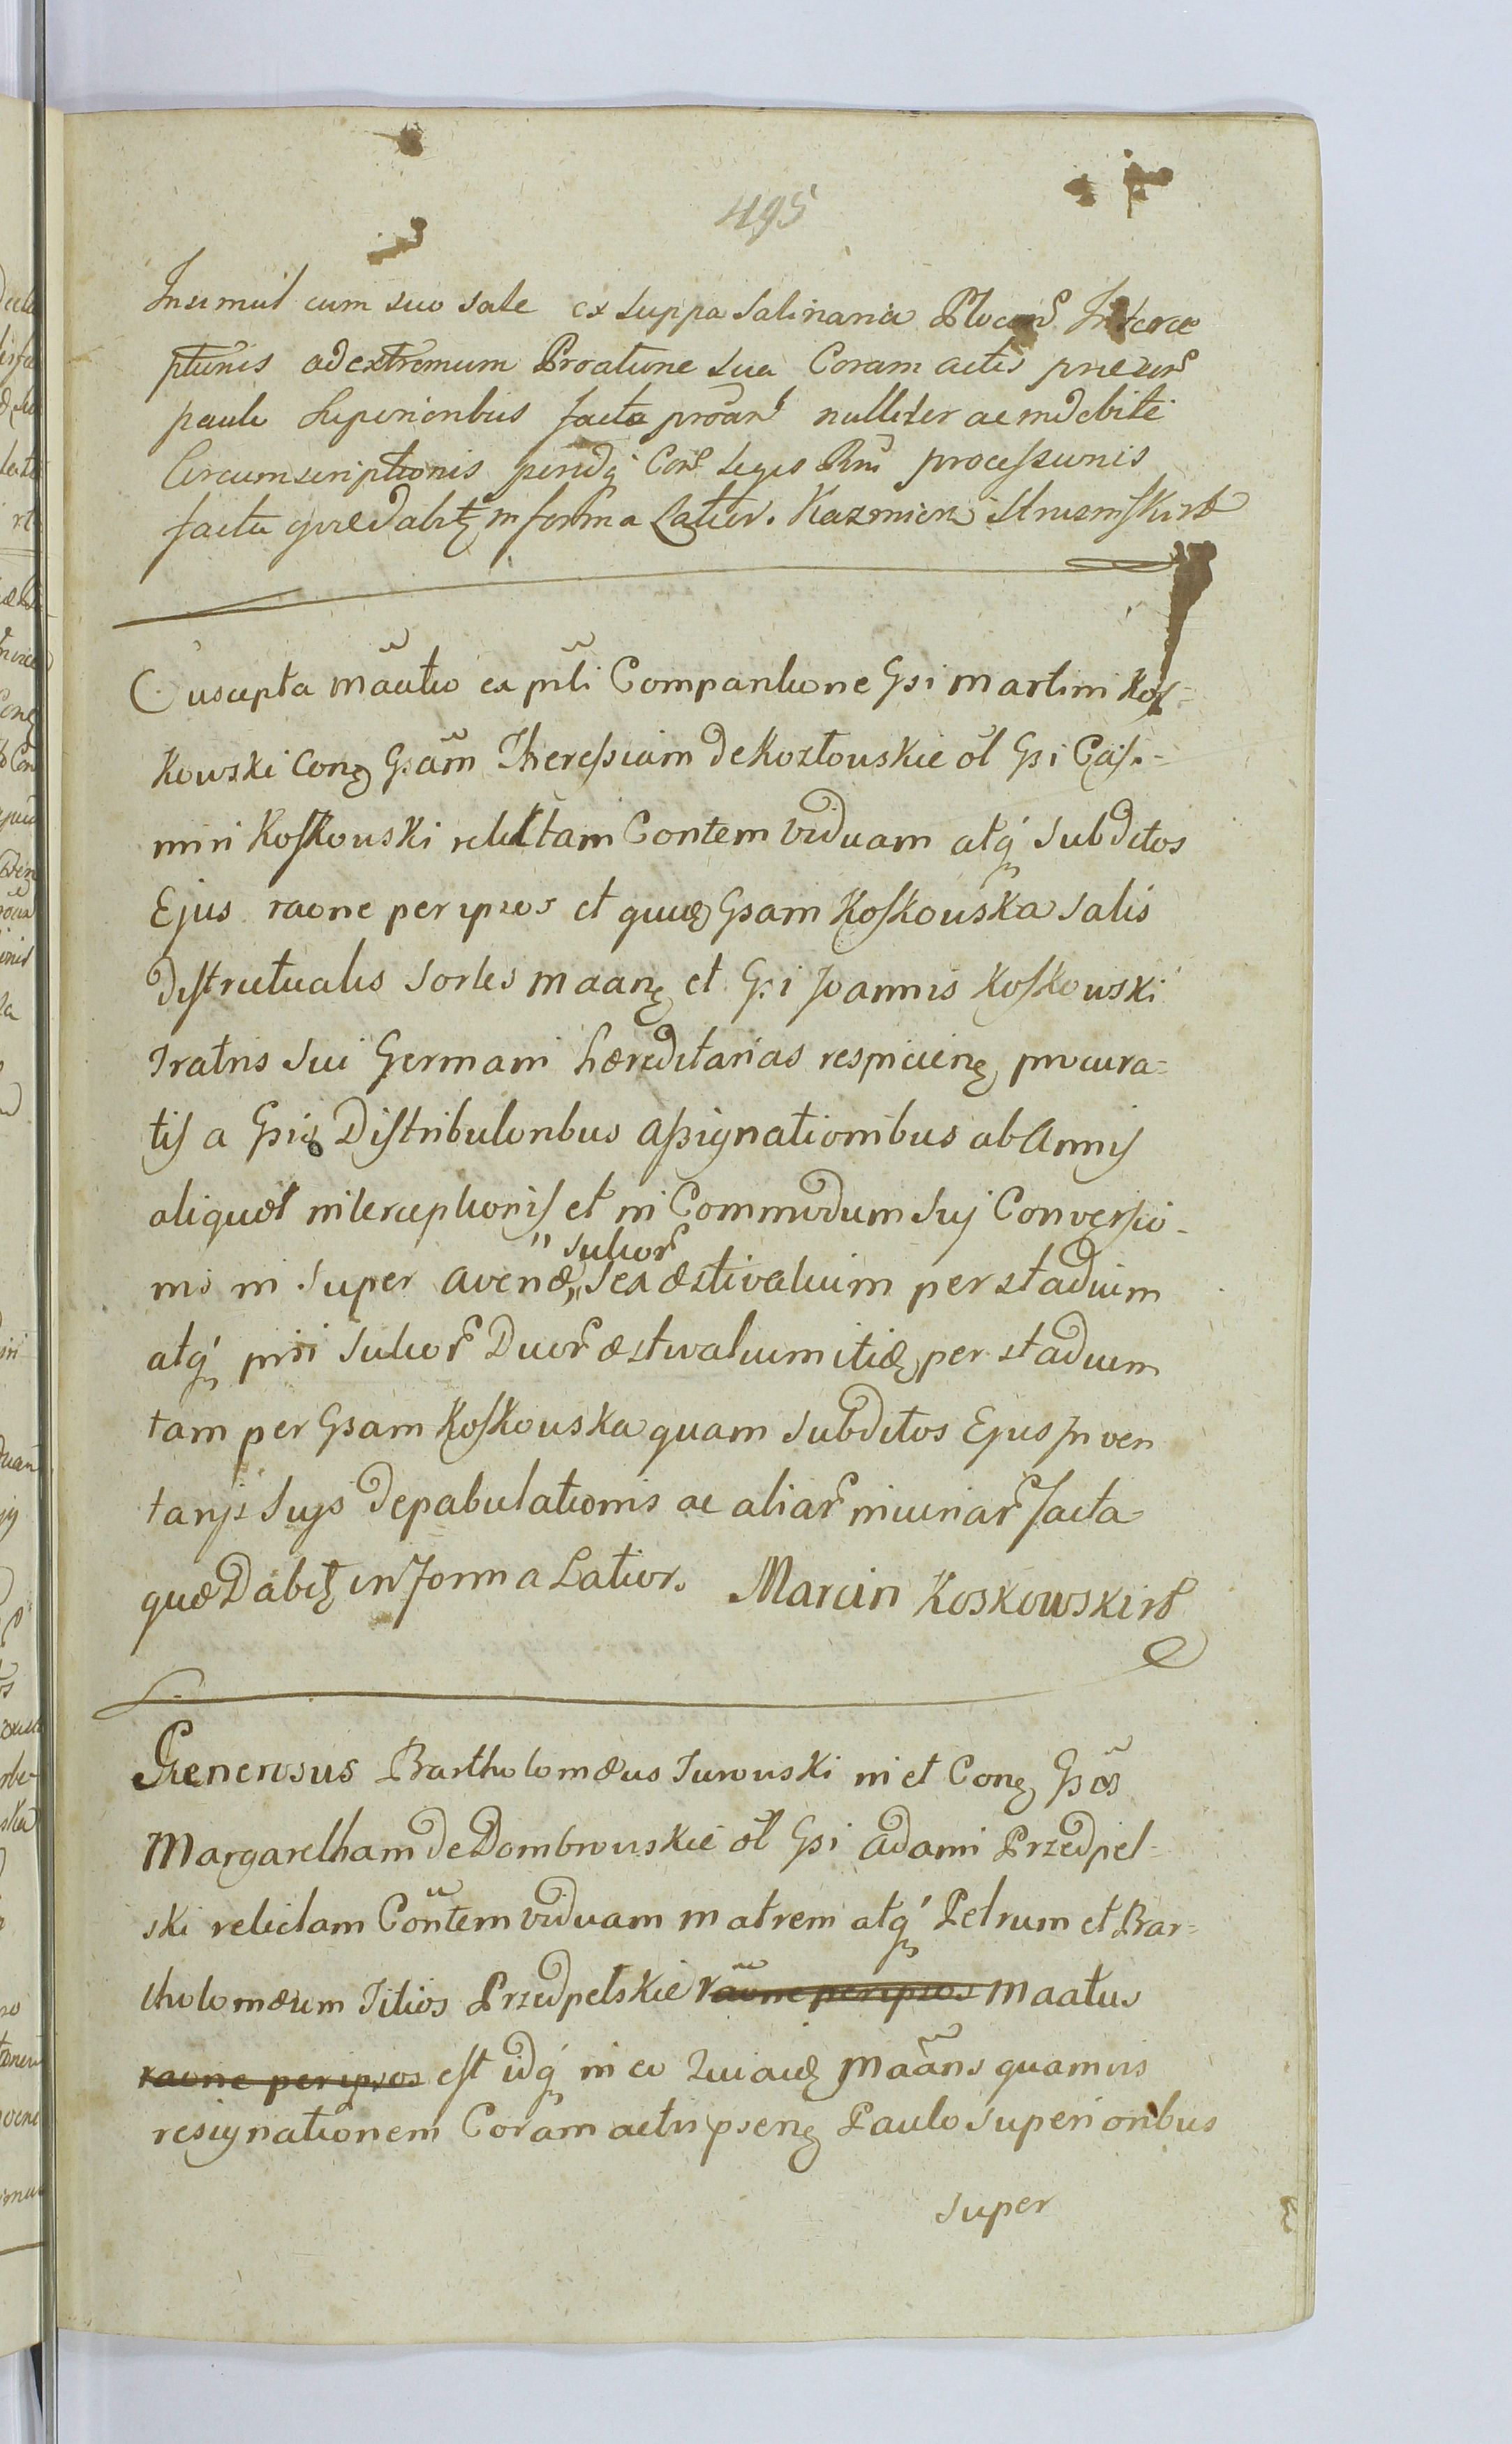 495
Insimul cum suo sale ex suppa Salinaria Plocen Interce
ptionis ad extremum Proatione sua Coram actis præsen
paulo Superioribus facta proan nulliter ac indebite
Circumscriptionis peridq Con Leges Rni processionis
facta quæ dabitz in forma Latior. Kazmierz Strusinski rt
Suscepta maatio ex prli Comparitione Gsi Martini Kos-
kowski Conz Gsam Theressiam de Kozłowskie ol Gsi Casi-
miri Koskowski relictam Contem viduam atq subditos
Ejus raone per ipsos et quuæ Gsam Koskowska salis
Districtualis sortes maanz et Gsi Joannis Koskowski
Fratris sui Germani hæreditarias respicienz procura-
tis a Gsis Distributoribus assignationibus ab Annis
aliquot interceptionis et in Commodum suj Conversio-
" sulcor
nis in super avenæ „ sex æstivalium per stadium
atq prisi sulcor Duor æstivalium itidæ per stadium
tam per Gsam Koskowska quam subditos Ejus Inven
tarys suys depabulationis ac aliar iniuriar facta
quæ Dabitz in Forma Latior. Marcin Koskowski rt
Generosus Bartholomæus Turowski in et Conz Gsas
Margaretham de Dombrowskie ol Gsi Adami Przedpel-
ski relictam Contem viduam matrem atq Petrum et Bar-
tholomæum Filios Przedpełskie raone per ipsos Maatus
raone per ipsos est idq in eo Quiaæ Maans quamvis
resignationem Coram actis psenz Paulo superioribus
super